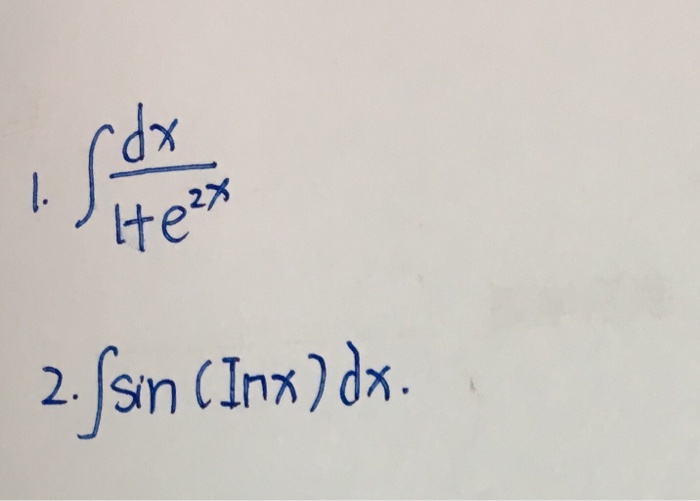 1. ∫ dx / 1+e^2x
2. ∫ sin (Inx) dx.